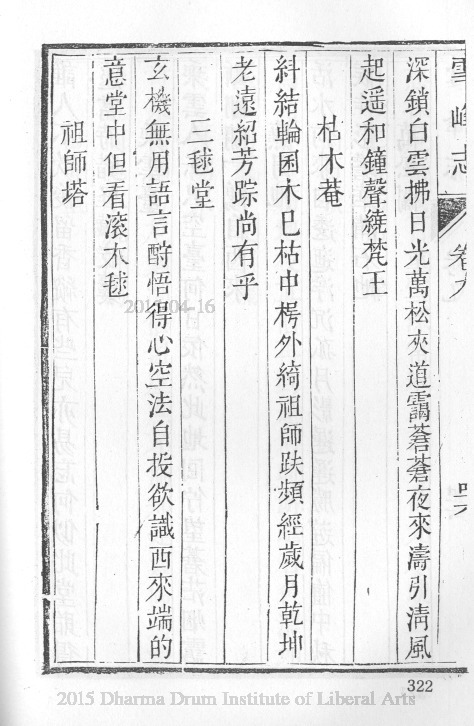 雪峰志
卷九
深鎖白雲拂日光萬松夾道靄蒼蒼夜來濤引清風
起遥和鐘聲繞梵王
枯木菴
糾結輪囷木巳枯中樗外綺祖師趺頻經歲月乾坤
老遠紹芳踪尚有乎
三毬堂
玄機無用語言酧悟得心空法自投欲識西來端的
意堂中但看滚木毬
祖師塔
322
2015 Dharma Drum Institute of Liberal Arts